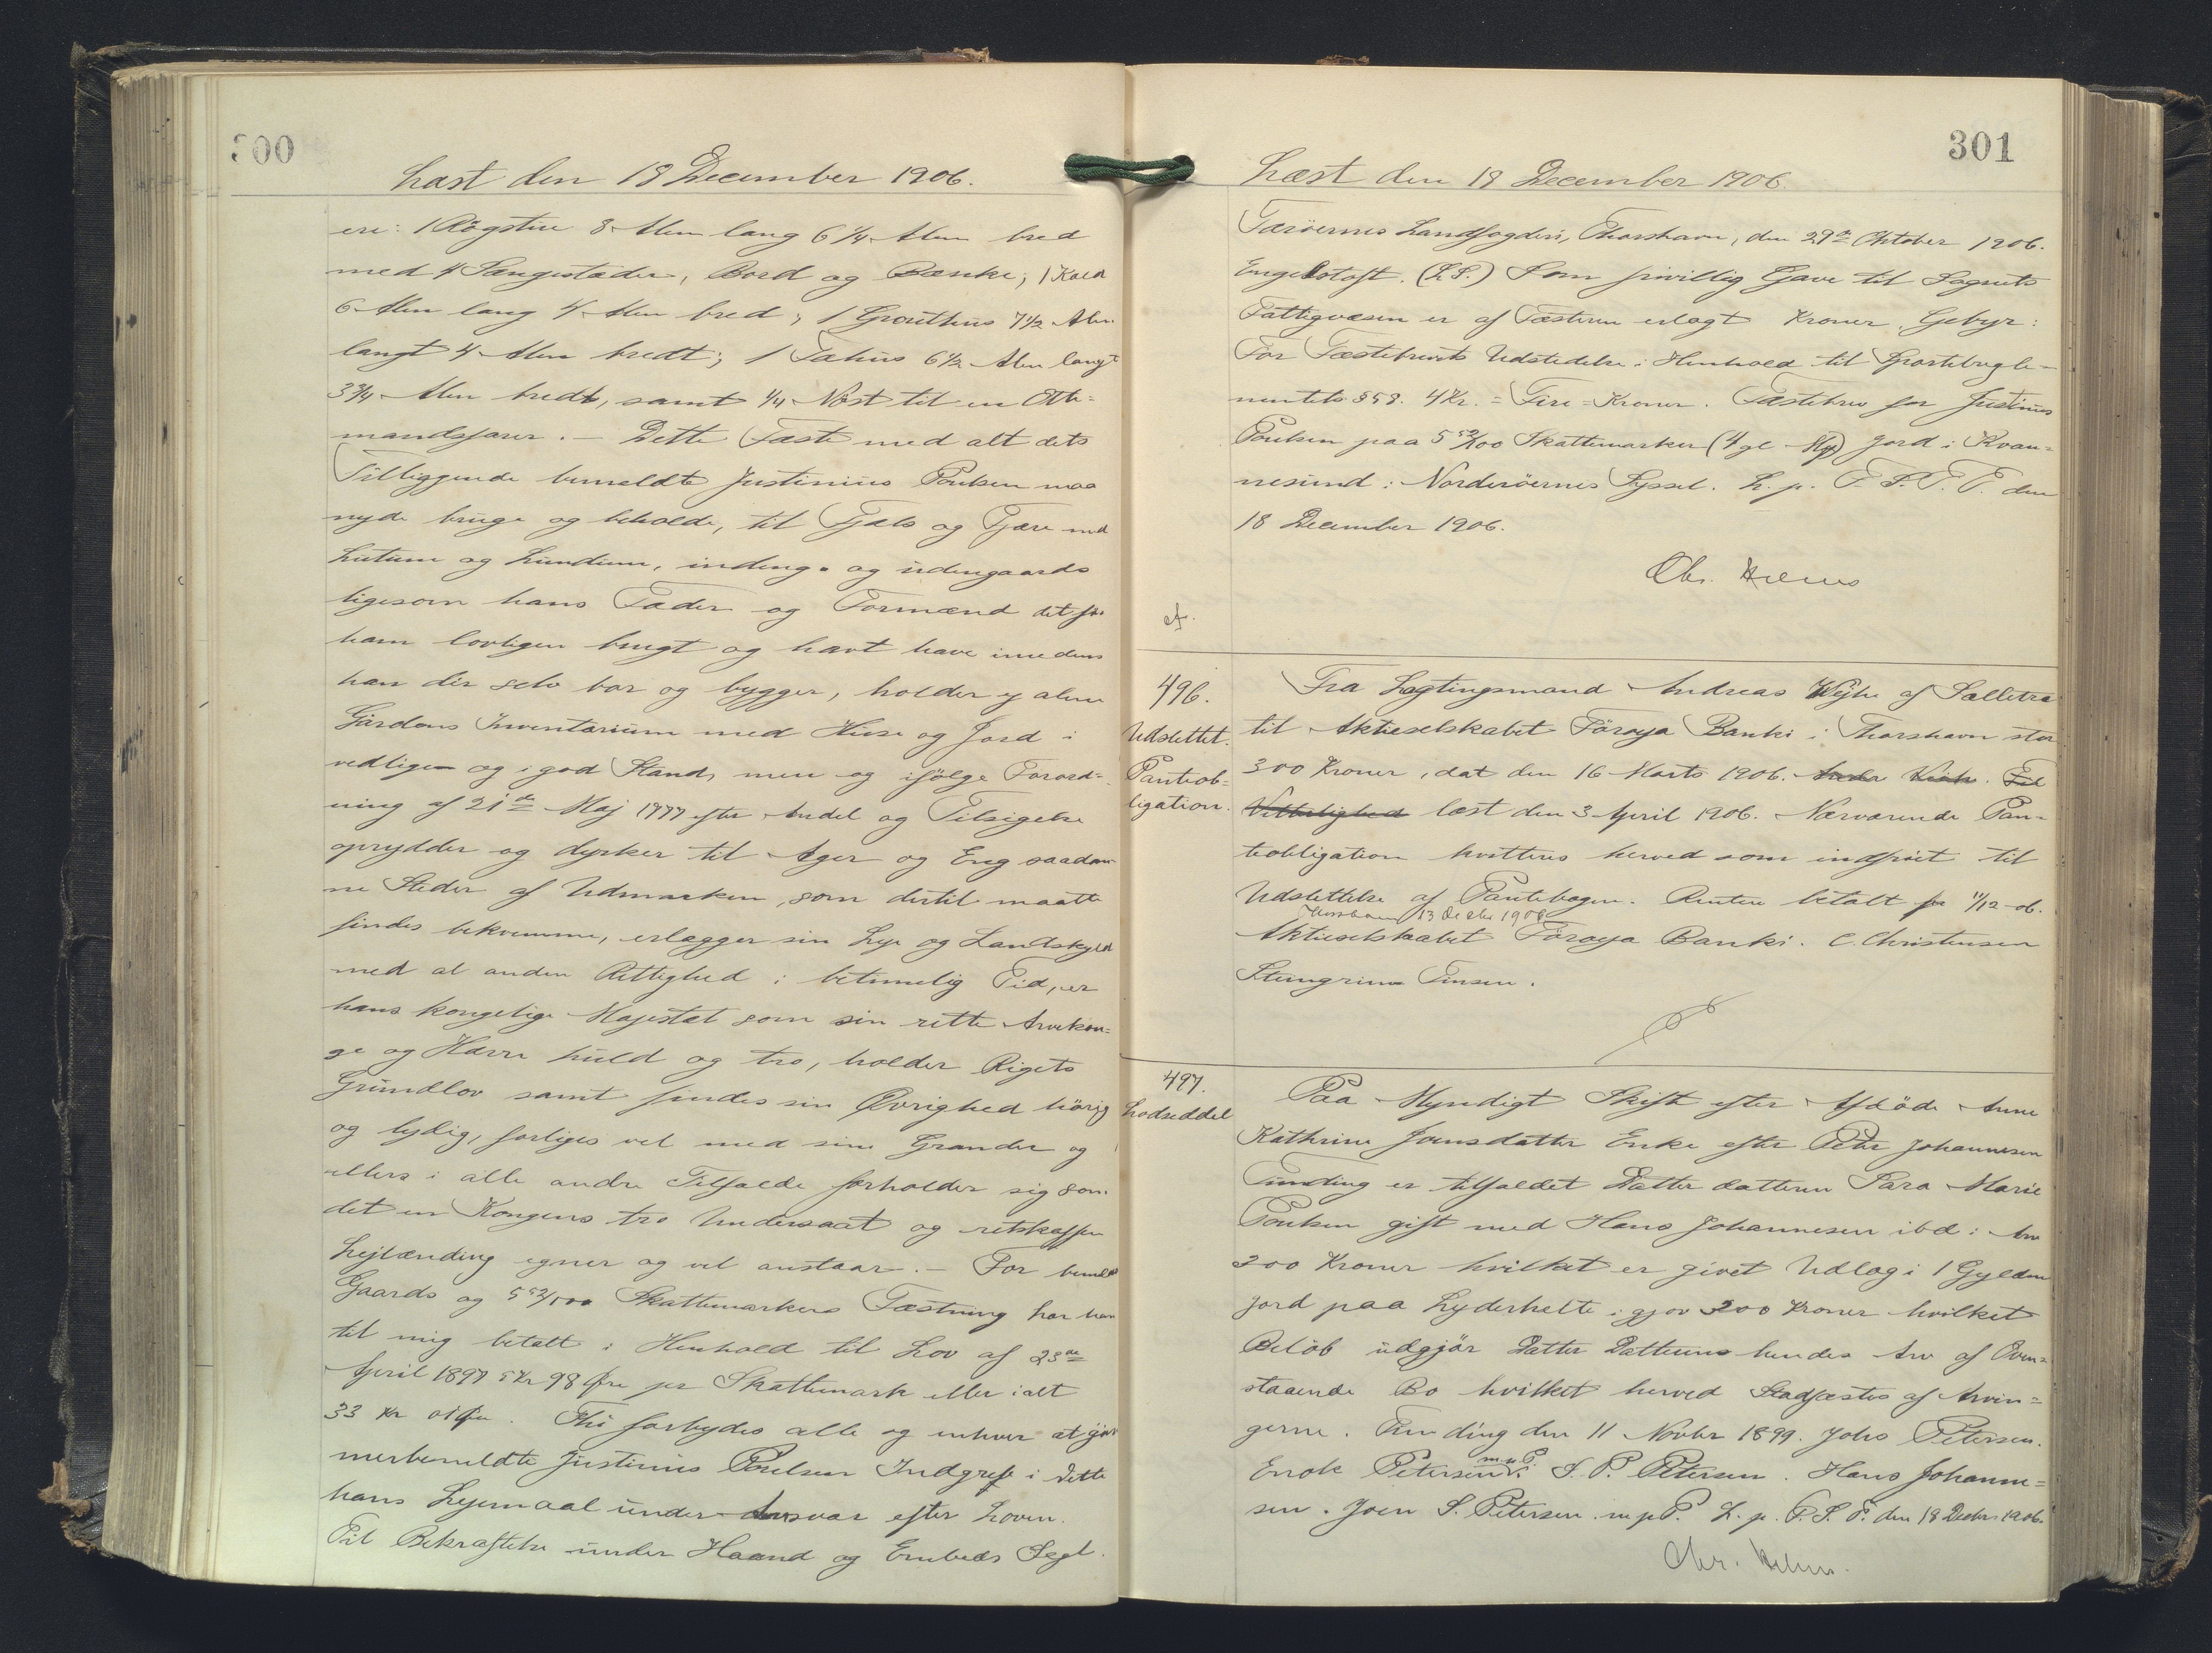 300
Læst den 18 December 1906.
ere: 1 Røgstue 8 Alen lang 6 1/4 Alen bred
med 4 Sengesteder, Bord og Bænke; 1 Kove
6 Alen lang 4 Alen bred; 1 Grouthus 7 1/2 Alen
langt 4 Alen bredt; 1 Fahus 6 1/2 Alen langt
3 3/4 Alen bredt, samt 1/4 Nøst til en Otte=
mandsfarer. - Dette Fæste med alt dets
Tilliggende bemeldte Justinius Poulsen maa
nyde bruge og beholde, til Fjels og Fjære med
Luttum og Lundum, indeng- og udengaards
ligesom hans Fader og Formænd det før
ham lovligen brugt og havt have imedens
han dér selv bor og bygger, holder ej alene
Gårdens Inventarium med Huse og Jord i
vedlige og i god Stand, men og ifølge Forord=
ning af 21de Maj 1777 efter Andel og Tilsigelse
oprydder og dyrker til Ager og Eng saadan
ne Steder af Udmarken, som dertil maatte
findes bekvemme, erlægger sin Leje og Landskyld
med al anden Rettighed i betimelig Tid, er
hans kongelige Majestæt som sin rette Arvekon=
ge og Herre huld og tro, holder Rigets
Grundlov samt findes sin Øvrighed hørig
og lydig, forliges vel med sine Grander og
ellers i alle andre Tilfælde forholder sig som
det en Kongens tro Undersaat og retskaffen
Lejlænding egner og vel anstaar. - For bemeldte
Gaards og 5 52/100 Skattemarkers Fæstning har han
til mig betalt i Henhold til Lov af 23de
April 1897 5 Kr 98 Øre pr Skattemark eller ialt
33 Kr 01 Øre. Thi forbydes alle og enhver at gjøre
merbemeldte Justinius Poulsen Indgreb i dette
hans Lejemaal under Ansvar efter Loven.
Til Bekræftelse under Haand og Embeds Segl.
301
Læst den 18 December 1906.
Færøernes Landfogderi, Thorshavn, den 29de Oktober 1906.
Engelstoft. (L.S.) Som frivillig Gave til Sognets
Fattigvæsen er af Fæsteren erlagt Kroner. Gebyr:
For Fæstebrevets Udstedelse i Henhold til Sportelregle-
mentets § 58. 4 Kr. = Fire = Kroner. Fæstebrev for Justinus
Poulsen paa 5 52/100 Skattemarker (4 gl Mk) Jord i Kvan=
nesund i Norderøernes Syssel. L. p. F. S. T. P. den
18 December 1906.
Chr.
496.
Udslettet.
Panteob=
ligation.
Fra Lagtingsmand Andreas Wejhe af Selletræ
til Aktieselskabet Föroya Banki i Thorshavn stor
300 Kroner, dat den 16 Marts 1906. Til
Vitterlighed læst den 3 April 1906. Nærværende Pan=
teobligation kvitteres herved som indfriet til
Udslettelse af Pantebogen. Renten betalt pr 11/12-06.
Thorshavn 13 Decbr 1906
Aktieselskabet Föroya Banki. C. Christensen
497.
Lodseddel
Paa Myndigt Skift efter Afdöde Anne
Kathrine Joensdatter Enke efter Peter Johannesen
Funding er tilfaldet Datter datteren Sara Marie
Poulsen gift med Hans Johannesen ibd: Arv
200 Kroner hvilket er givet Udlag i 1 Gylden
Jord paa Lyderhelte igjør 200 Kroner hvilket
Beløb udgjør Datter Datterens hendes Arv af Oven=
staaende Bo hvilket herved Stadfæstes af Arvin=
gerne. Funding den 11 Novbr 1899. Johs Petersen.
Enok Petersen m.p.P. S. P. Petersen. Hans Johanne=
sen. Joen S. Petersen. m.p.P. L. p. F. S. P. den 18 Decbr 1906.
Chr.